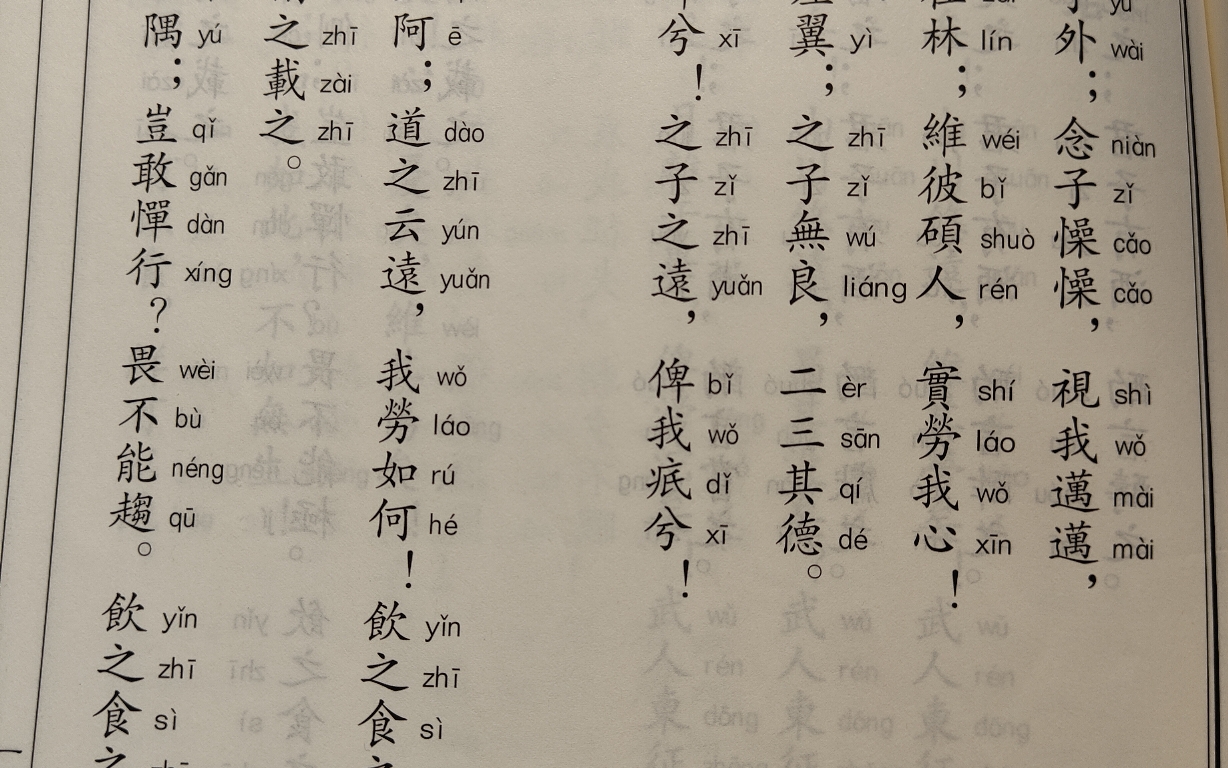 外；念子懆懆，視我邁邁，
wài niàn zǐ cǎo cǎo shì wǒ mài mài
林；維彼碩人，實勞我心！
lín wéi bǐ shuò rén shí láo wǒ xīn
翼；之子無良，二三其德。
yì zhī zǐ wú liáng èr sān qí dé
兮！之子之遠，俾我疧兮！
xī zhī zǐ zhī yuǎn bǐ wǒ dǐ xī
阿；道之云遠，我勞如何！飲之食
ē dào zhī yún yuǎn wǒ láo rú hé yǐn zhī sì
之載之。
zhī zài zhī
隅；豈敢憚行？畏不能趨。飲之食
yú qǐ gǎn dàn xíng wèi bù néng qū yǐn zhī sì